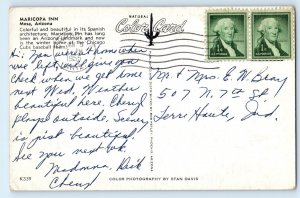 MARICOPA INN
Mesa, Arizona
Colorful and beautiful in its Spanish
architecture, Maricopa Inn has long
been an Arizona landmark and now
is the winter home of the Chicago
Cubs baseball team.
NATURAL
Color Card
Hi, Now we are at home where
we left, will give you
check when we get home
next Wed. Weather
beautiful here. Cheryl
plays outside. Scenery
is just beautiful.
See you next wk.
Madonna, Dick
Cheryl
Mr & Mrs E. W. Bray
507 N. 7th St
Terre Haute, Ind.
K339
COLOR PHOTOGRAPHY BY RYAN DAVIS